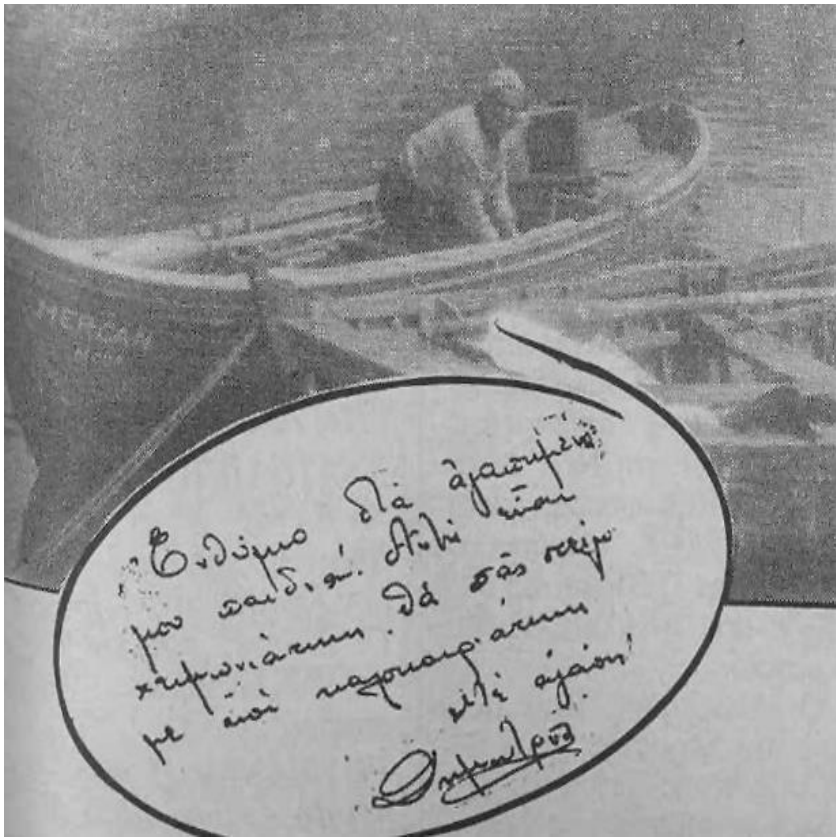 MERCAN
Ἐνθύμιο στά ἀγαπημένα
μου παιδιά. Αὐτή εἶναι
χειμωνιάτικη. Θά σᾶς στείλω
με καί καλοκαιριάτικη
μέ ἀγάπη!